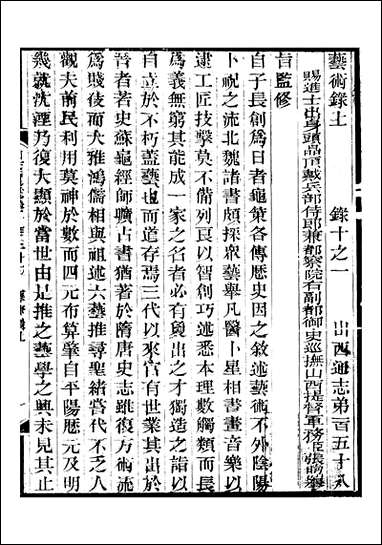 藝術錄上　錄十之一　山西通志第百五十八
賜進士出身頭品頂戴兵部侍郎兼都察院右副都御史巡撫山西提督軍務臣張煦奉
旨監修
自子長創為日者龜策各傳歷史因之敘述藝術不外陰陽
卜祝之流北魏諸書頗採眾藝舉凡醫卜星相書畫音樂以
逮工匠技擊莫不備列良以智創巧述悉本理數觸類以
為義無窮其能成一家之名者必有與出之才獨造之詣以
自立於不朽蓋藝也而道存焉三代以來官有世業其出於
晉者若史蘇龜經師曠占書猶著於隋唐史志雖復方術流
為賤役而大雅鴻儒相與祖述六藝推尋聖緒當代不乏人
觀夫前民利用莫神於數而四元布算肇自平陽歷元及明
幾就沈湮乃復大顯於當世由是推之藝學之興未見其止